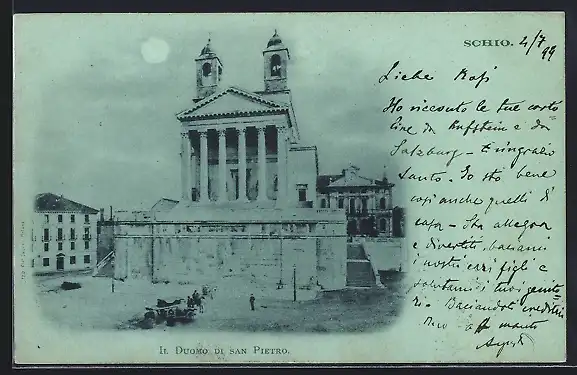 SCHIO. 4/7 99
Liebe Rosi
Ho ricevuto le tue carto
line da Kuffstein e da
Salzburg - Ti ringrazio
tanto. Io sto bene
così anche quelli di
casa - Sta allegra
e divertiti, baciami
i nostri cari figli e
salutami i tuoi genito
ri - Baciandoti
IL DUOMO DI SAN PIETRO.